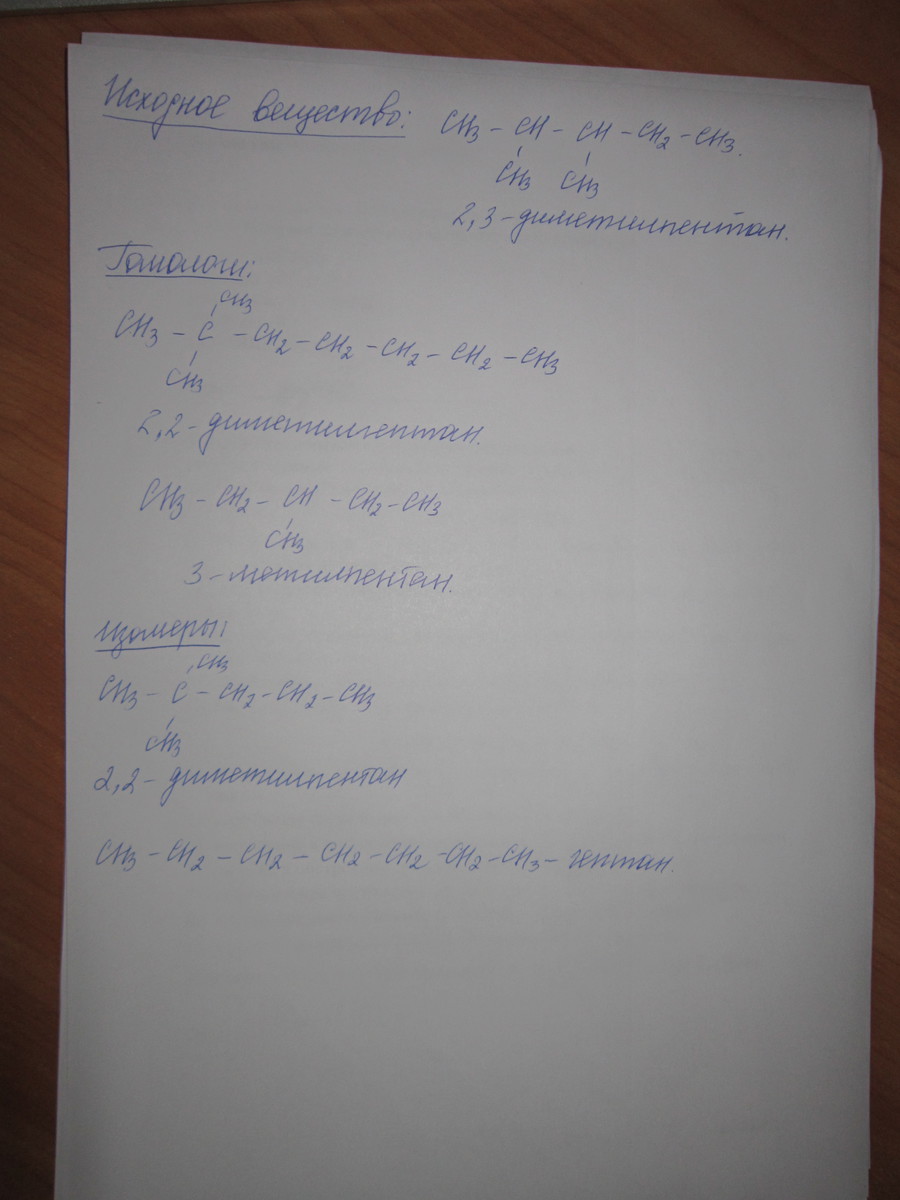 Исходное вещество: CH3 - CH - CH - CH2 - CH3.
CH3 CH3
2,3-диметилпентан.
Гомологи:
CH3
CH3 - C - CH2 - CH2 - CH2 - CH2 - CH3
CH3
2,2-диметилгептан.
CH3 - CH2 - CH - CH2 - CH3
CH3
3-метилпентан.
изомеры:
CH3
CH3 - C - CH2 - CH2 - CH3
CH3
2,2-диметилпентан
CH3 - CH2 - CH2 - CH2 - CH2 - CH2 - CH3 - гептан.